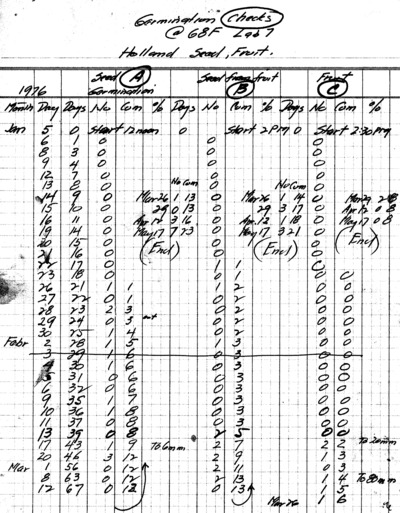 Germination Checks
@ 68F Lab 7
Holland Seed, Fruit.
Seed A Seed from fruit Fruit
1976 Germination B C
Month Day Days No Cum % Days No Cum % Days No Cum %
Jan 5 0 Start 12 noon 0 Start 2 PM 0 Start 2:30 PM
6 1 0 0
8 3 0 0
9 4 0 0
12 7 0 0
13 8 0 No Cum 0 No Cum
14 9 0 Mar 26 1 13 0 Mar 26 1 14 0 Mar 29 2 8
15 10 0 29 0 13 0 29 3 17 0 Apr 12 0 8
16 11 0 Apr 12 3 16 0 Apr 12 1 18 0 May 17 0 8
19 14 0 May 17 7 23 0 May 17 3 21 0
20 15 0 (End) 0 (End) 0 (End)
21 16 0 0 0
22 17 0 1 1 0
23 18 0 0 1 0 0
26 21 1 1 1 2 0 0
27 22 0 1 0 2 0 0
28 23 2 3 0 2 0 0
29 24 0 3 out 0 2 0 0
30 25 1 4 0 2 0 0
Febr 2 28 1 5 1 3 0 0
3 29 1 6 0 3 0 0
4 30 1 6 0 3 0 0
5 31 0 6 0 3 0 0
6 32 0 6 0 3 0 0
9 35 1 7 0 3 0 0
10 36 1 8 0 3 0 0
11 37 0 8 0 3 0 0
13 39 0 8 2 5 0 0
17 43 1 9 To 6mm 2 7 2 2 To 20mm
20 46 3 12 2 9 1 3
Mar 1 56 0 12 2 11 0 3
8 63 0 12 2 13 1 4 To 80mm
12 67 0 12 0 13 1 5
Mar 26 1 6